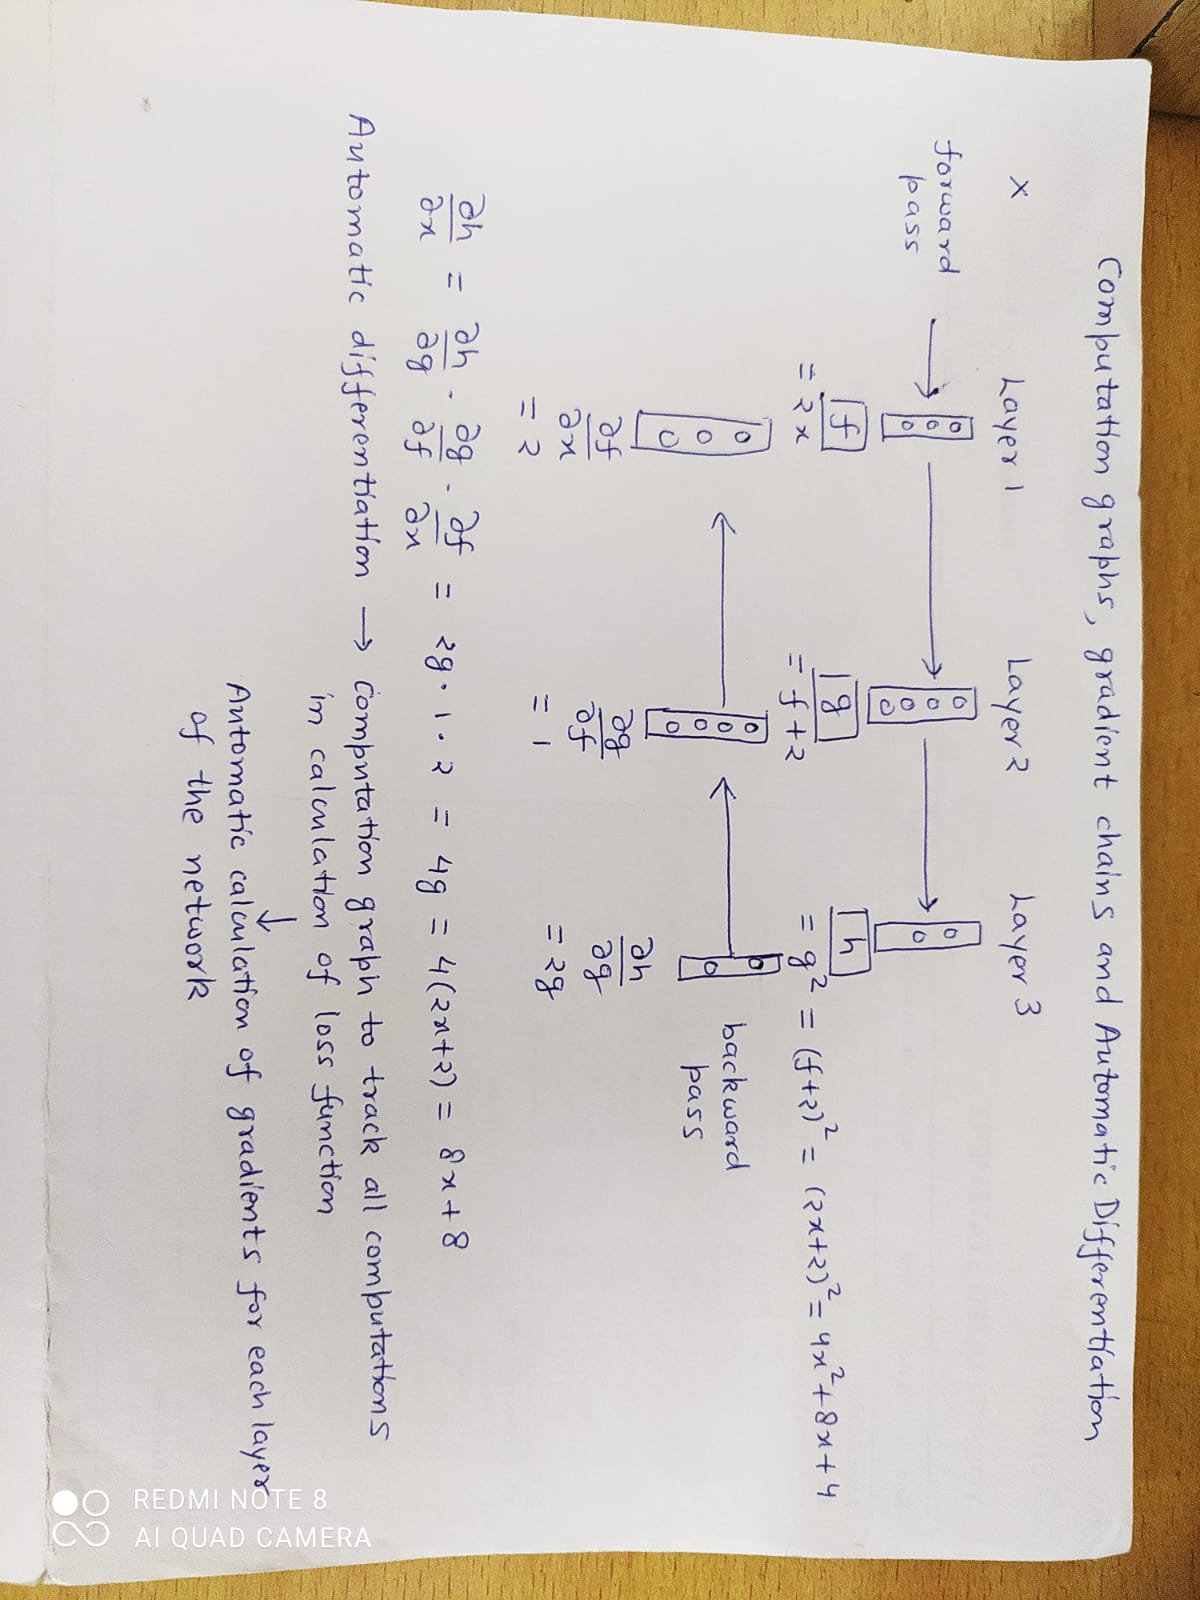 Computation graphs, gradient chains and Automatic Differentiation
x Layer 1 Layer 2 Layer 3
forward
pass
f g h
= 2x = f+2 = g² = (f+2)² = (2x+2)² = 4x²+8x+4
backward
pass
∂f/∂x ∂g/∂f ∂h/∂g
= 2 = 1 = 2g
∂h/∂x = ∂h/∂g · ∂g/∂f · ∂f/∂x = 2g · 1 · 2 = 4g = 4(2x+2) = 8x+8
Automatic differentiation → Computation graph to track all computations
in calculation of loss function
↓
Automatic calculation of gradients for each layer
of the network
REDMI NOTE 8
AI QUAD CAMERA